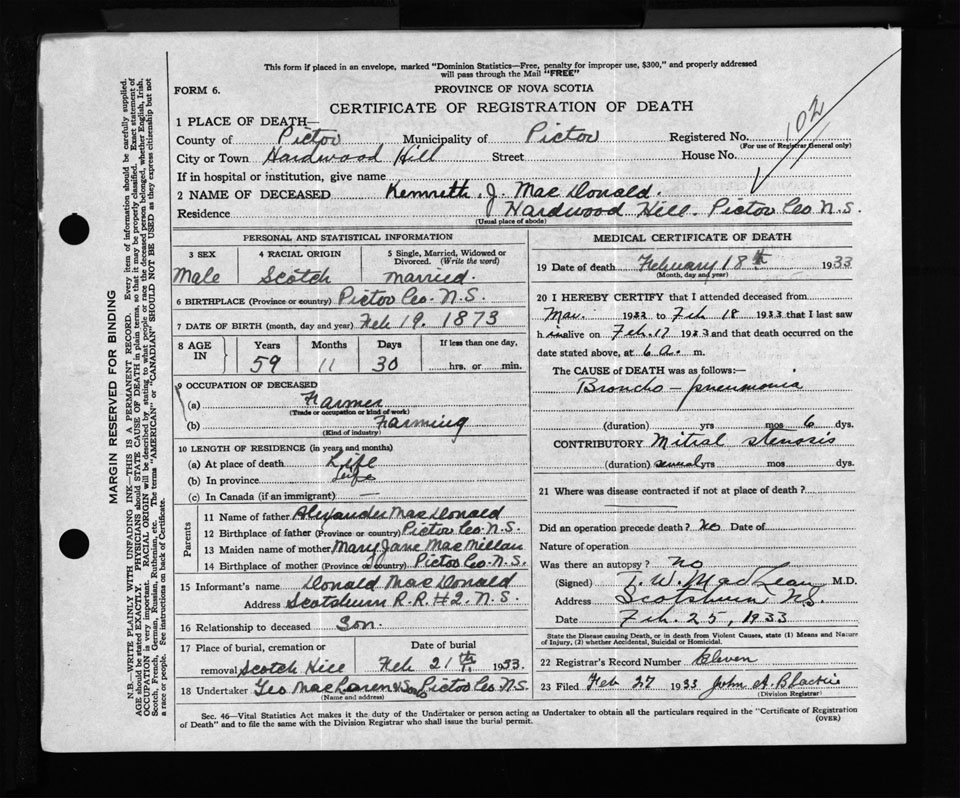 This form if placed in an envelope, marked "Dominion Statistics—Free, penalty for improper use, $300," and properly addressed
will pass through the Mail "FREE"
FORM 6.
PROVINCE OF NOVA SCOTIA
CERTIFICATE OF REGISTRATION OF DEATH
102
1 PLACE OF DEATH—
County of Pictou Municipality of Pictou Registered No.
(For use of Registrar General only)
City or Town Hardwood Hill Street House No.
If in hospital or institution, give name
2 NAME OF DECEASED Kenneth J. MacDonald.
Residence Hardwood Hill. Pictou Co N.S.
(Usual place of abode)
PERSONAL AND STATISTICAL INFORMATION
3 SEX 4 RACIAL ORIGIN 5 Single, Married, Widowed or
Divorced. (Write the word)
Male Scotch Married.
6 BIRTHPLACE (Province or country) Pictou Co. N.S.
7 DATE OF BIRTH (month, day and year) Feb 19. 1873
8 AGE IN Years Months Days If less than one day,
59 11 30 hrs. or min.
9 OCCUPATION OF DECEASED
(a) Farmer
(Trade or occupation or kind of work)
(b) Farming
(Kind of industry)
10 LENGTH OF RESIDENCE (in years and months)
(a) At place of death Life
(b) In province Life
(c) In Canada (if an immigrant) —
Parents
11 Name of father Alexander MacDonald
12 Birthplace of father (Province or country) Pictou Co. N.S.
13 Maiden name of mother Mary Jane MacMillan
14 Birthplace of mother (Province or country) Pictou Co. N.S.
15 Informant's name Donald MacDonald
Address Scotsburn R.R. #2. N.S.
16 Relationship to deceased Son.
17 Place of burial, cremation or Date of burial
removal Scotch Hill Feb 21th 1933.
18 Undertaker Geo MacLaren & Son Pictou Co. N.S.
(Name and address)
MEDICAL CERTIFICATE OF DEATH
19 Date of death February 18th 1933
(Month, day and year)
20 I HEREBY CERTIFY that I attended deceased from
1932 to Feb 18 1933 that I last saw
h im alive on Feb. 17 1933 and that death occurred on
date stated above, at 6 A. m.
The CAUSE of DEATH was as follows:—
Broncho-pneumonia
(duration) yrs mos 6 dys.
CONTRIBUTORY Mitral stenosis
(duration) several yrs mos dys.
21 Where was disease contracted if not at place of death?
Did an operation precede death? no Date of
Nature of operation
Was there an autopsy? no
(Signed) W. MacLean M.D.
Address Scotsburn N.S.
Date Feb. 25, 1933
State the Disease causing Death, or in death from Violent Causes, state (1) Means and Nature
of Injury, (2) whether Accidental, Suicidal or Homicidal.
22 Registrar's Record Number Eleven
23 Filed Feb 27 1933 John A. Blackie
(Division Registrar)
Sec. 46—Vital Statistics Act makes it the duty of the Undertaker or person acting as Undertaker to obtain all the particulars required in the "Certificate of Registration
of Death" and to file the same with the Division Registrar who shall issue the burial permit.
(OVER)
MARGIN RESERVED FOR BINDING
N.B. WRITE PLAINLY WITH UNFADING INK—THIS IS A PERMANENT RECORD. Every item of information should be carefully supplied.
AGE should be stated EXACTLY. PHYSICIANS should STATE CAUSE OF DEATH in plain terms, so that it may be properly classified. Exact statement of
OCCUPATION is very important. RACIAL ORIGIN will be described by stating to what people or race the deceased person belonged, whether English, Irish,
Scotch, French, German, Russian, Ruthenian, etc. The terms "AMERICAN" or "CANADIAN" SHOULD NOT BE USED as they express citizenship but not
a race or people. See instructions on back of Certificate.